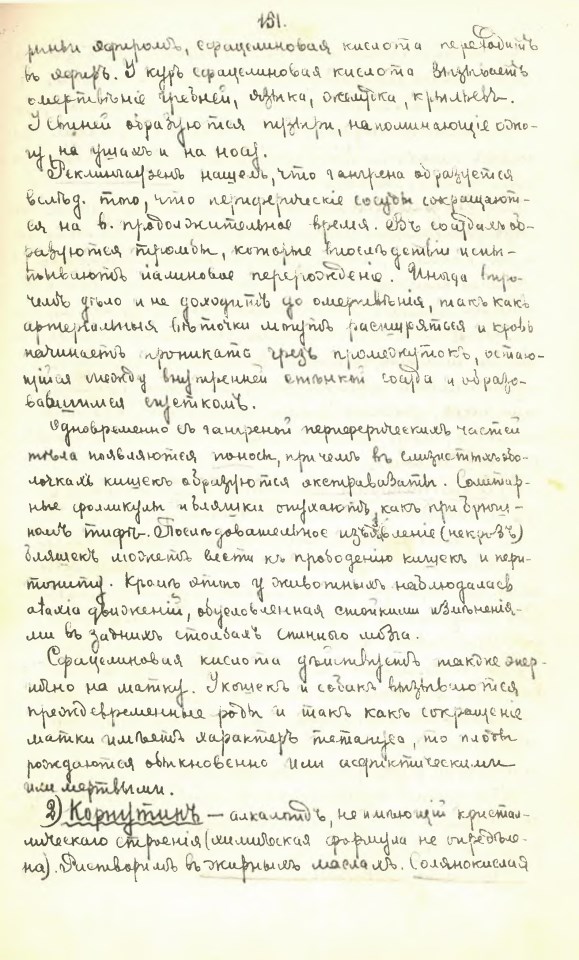 151.
рыньи эфиромъ, сфацелиновая кислота переходитъ
въ эфиръ. У куръ сфацелиновая кислота вызываетъ
омертвѣніе гребней, языка, желудка, крыльевъ.
У свиней образуются пузыри, напоминающіе ожо-
гу, на ушахъ и на носу.
Реклингаузенъ нашелъ, что гангрена образуется
вслѣд. того, что периферическіе сосуды сокращают-
ся на б. продолжительное время. Въ сосудахъ об-
разуются тромбы, которые впослѣдствіи испы-
тываютъ гіалиновое перерожденіе. Иногда впро-
чемъ дѣло и не доходитъ до омертвѣнія, такъ какъ
артеріальныя вѣточки могутъ расширяться и кровь
начинаетъ проникать чрезъ промежутокъ, остаю-
щійся между внутренней стѣнкой сосуда и образо-
вавшимся сгусткомъ.
Одновременно съ гангреной периферическихъ частей
тѣла появляются поносы, при чемъ въ слизистыхъ обо-
лочкахъ кишекъ образуются экстравазаты. Солитар-
ные фоликулы и бляшки опухаютъ, какъ при брюш-
номъ тифѣ. Послѣдовательное изъязвленіе (некрозъ)
бляшекъ можетъ вести къ прободенію кишекъ и пери-
тониту. Кромѣ этого у животныхъ наблюдалась
атахіа движеній, обусловленная стойкими измѣненія-
ми въ заднихъ столбахъ спинного мозга.
Сфацелиновая кислота дѣйствуетъ также энер-
гично на матку. У кошекъ и собакъ вызываются
преждевременные роды и такъ какъ сокращеніе
матки имѣетъ характеръ тетануса, то плоды
рождаются обыкновенно или асфиктическими
или мертвыми.
2) Корнутинъ — алкалоидъ, не имѣющій кристал-
лическаго строенія (химическая формула не опредѣле-
на). Растворимъ въ жирныхъ маслахъ. Солянокислая